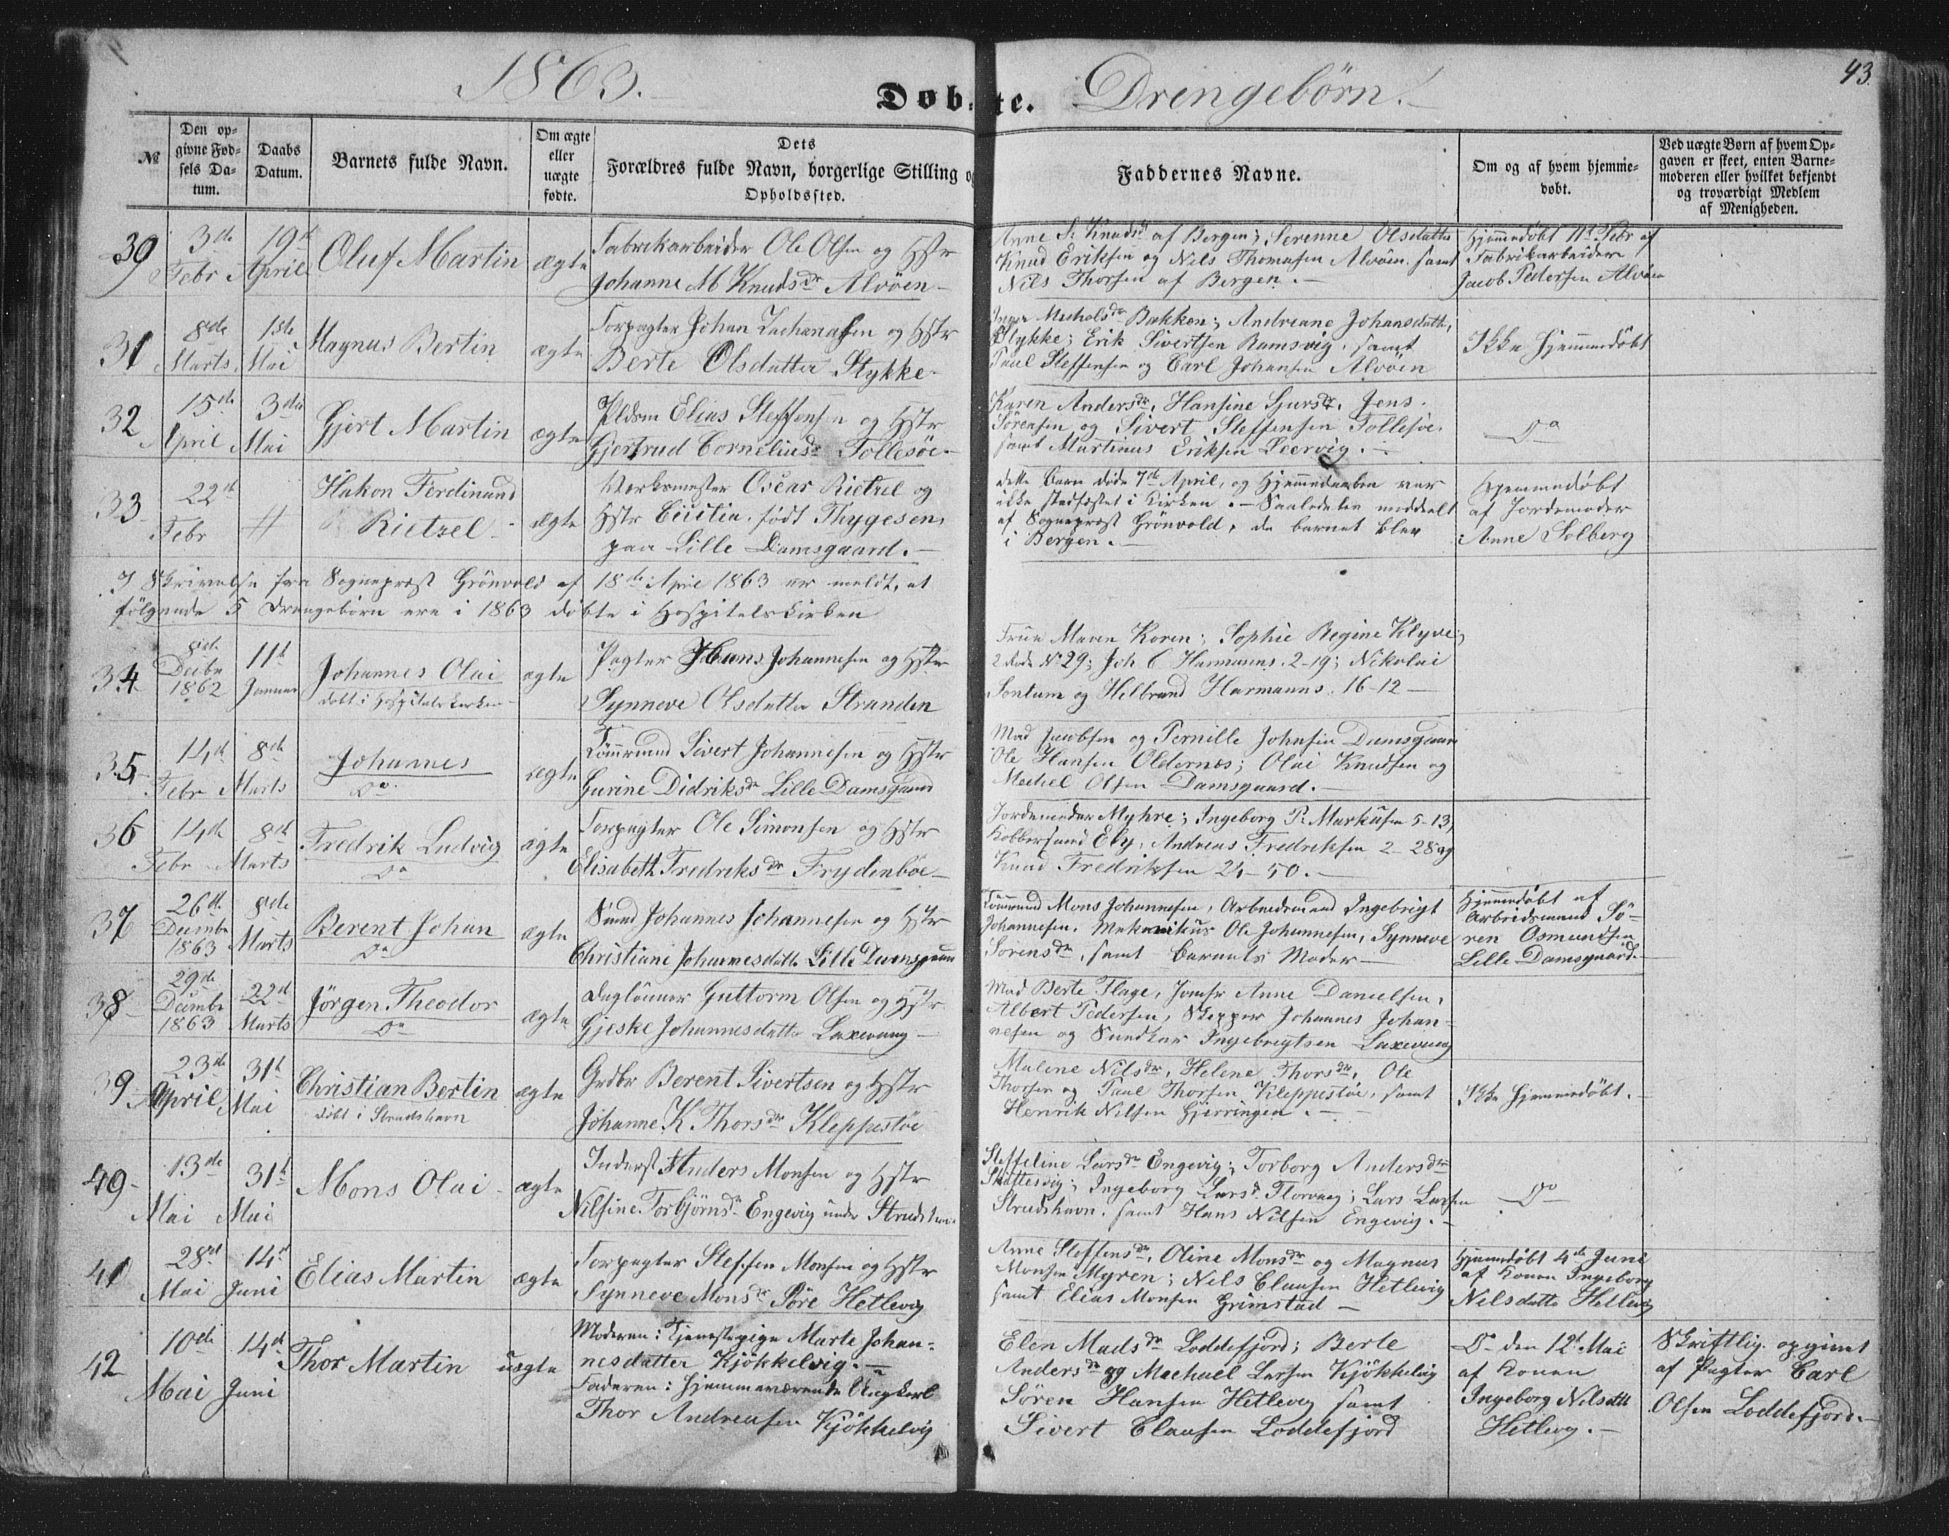 1863.
Døbte. Drengebørn.
43.
№
Den op-
givne Fød-
sels Da-
tum.
Daabs
Datum.
Barnets fulde Navn.
Om ægte
eller
uægte
fødte.
Dets
Forældres fulde Navn, borgerlige Stilling og
Opholdssted.
Faddernes Navne.
Om og af hvem hjemme-
døbt.
Ved uægte Børn af hvem Op-
gaven er skeet, enten Barne-
moderen eller hvilket bekjendt
og troværdigt Medlem
af Menigheden.
39
3de
Febr
19de
April
Oluf Martin
ægte
Fabrikarbeider Ole Olsen og Hstr
Johanne M Knudsdr Alvøen
Anne S. Knudsd af Bergen; Serenne Olsdatter
Knud Eriksen og Nils Thomasen Alvøen. samt
Nils Thorsen af Bergen.
Hjemmedøbt 11t Febr af
Fabrikarbeider
Jacob Pedersen Alvøen
31
8de
Marts
1ste
Mai
Magnus Bertin
ægte
Forpagter Johan Zachariasen og Hstr
Berte Olsdatter Stykke
Inger Michelsdr Bakken; Andreane Johansdatter,
Stykke; Erik Sivertsen Ramsvig, samt
Paul Steffensen og Carl Johansen Alvöen
Ikke Hjemmedøbt
32
15de
April
3die
Mai
Gjert Martin
ægte
Pldsm Elias Steffensen og Hstr
Gjertrud Corneliusdr Follesöe
Karen Andersdr, Hansine Sjursdr, Jens
Sørensen og Sivert Steffensen Follesöe
samt Martinus Eriksen Leervig.
Do
33
22de
Febr
Hakon Ferdinand
Rietzel
ægte
Værksmester Oscar Rietzel og
Hstr født Thygesen,
paa Lille Damsgaard.
dette Barn døde 7de April, og Hjemmedaaben var
ikke stadfæstet i Kirken. - Saaledes meddeelt
af Sognepræst Grönvold, da barnet blev
i Bergen.
Hjemmedöbt
af Jordemoder
Anne Solberg
I Skrivelse fra Sognepræst Grönvold af 18de April 1863 er meldt, at
følgende 5 Drengebørn ere i 1863 døbte i Hospitalskirken
34
8de
Decbr
1862
11te
Januar
Johannes Olai
døbt i Hospitalskirken
ægte
Pagter Hans Johannesen og Hstr
Synneve Olsdatter Stranden
Frue Maren Koren; Sophie Regine Klyve;
2 Rode No 29; Joh C Harmanns. 2-19; Nikolai
Sontum og Hilbrand Harmanns. 16-12
35
14de
Febr
8de
Marts
Johannes
Do
ægte
Tømrmand Sivert Johannesen og Hstr
Gurine Didriksdr Lille Damsgaard
Mad Jacobsen og Pernille Johnsen Damsgaard
Ole Hansen Oldernes; Olai Knudsen og
Michel Olsen Damsgaard.
36
14de
Febr
8de
Marts
Fredrik Ludvig
Do
ægte
Forpagter Ole Simonsen og Hstr
Elisabeth Fredriksdr Frydenböe
Jordemoder Myhre; Ingeborg P. Markusen 5-13,
Kobbersmed Eby, Andreas Fredriksen 2-28 og
Knud Fredriksen 24-50.
37
26de
Decmbr
1863
8de
Marts
Berent Johan
Do
ægte
Smed Johannes Johannesen og Hstr
Christiane Johannesdatter Lille Damsgaard
Tømrmand Mons Johannesen, Arbeidsmand Ingebrigt
Johannesen, Mekanikus Ole Johannesen, Synneve
Sørensdr, samt Barnets Moder
Hjemmedøbt af
Arbeidsmand Sö-
ren Osmundsen
Lille Damsgaard.
38
29de
Decmbr
1863
22de
Marts
Jörgen Theodor
Do
ægte
Daglönner Guttorm Olsen og Hstr
Gjeske Johannesdatter Laxevaag
Mad Berte Flage, Jomfr Anne Danielsen,
Albert Pedersen, Skipper Johannes Johan-
nesen og Ingebrigtsen Laxevaag
39
23de
April
31t
Mai
Christian Bertin
döbt i Strudshavn
ægte
Grdbr Berent Sivertsen og Hstr
Johanne K Thorsdr Kleppestöe
Malene Nilsdr, Helene Thorsdr, Ole
Thorsen og Paul Thorsen Kleppestöe, samt
Henrik Nilsen Gjerringen.
Ikke hjemmedöbt.
40
13de
Mai
31t
Mai
Mons Olai
ægte
Inderst Anders Monsen og Hstr
Nilsine Torbjörnsdr Engevig under Strudshavn
Steffeline Larsdr Engevig; Torborg Andersdr
Skottesvig; Ingeborg Larsd. Florvaag; Lars Larsen
Strudshavn, samt Hans Nilsen Engevig.
Do
41
28de
Mai
14de
Juni
Elias Martin
ægte
Forpagter Steffen Monsen og Hstr
Synneve Monsdr Söre Hetlevig
Anne Steffensdr, Oline Monsdr og Magnus
Monsen Myren; Nils Clausen Hetlevig
samt Elias Monsen Grimstad
Hjemmedöbt 4de Juni
af Konen Ingeborg
Nilsdatter Hetlevig
42
10de
Mai
14de
Juni
Thor Martin
uægte
Moderen: Tjenestepige Marte Johan-
nesdatter Kjökkelvig.
Faderen: hjemmeværende Ungkarl
Thor Andreasen Kjökkelvig
Elen Madsdr Loddefjord; Berte
Andersdr og Machael Larsen Kjökkelvig
Sören Hansen Hetlevig samt
Sivert Clausen Loddefjord
Do den 12t Mai
af Konen
Ingeborg Nilsdttr
Hetlevig.
Skriftlig opgivet
af Pagter Carl
Olsen Loddefjord.